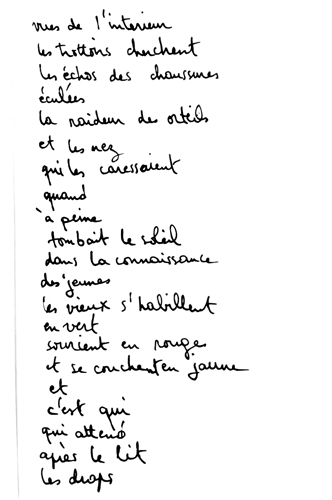 vues de l'interieur
les trottoirs cherchent
les échos des chaussures
éculées
la raideur des orteils
et les nez
qui les caressaient
quand
à peine
tombait le soleil
dans la connaissance
des jeunes
les vieux s'habillent
en vert
sourient en rouge
et se couchent en jaune
et
c'est qui
qui attend
après le lit
les draps